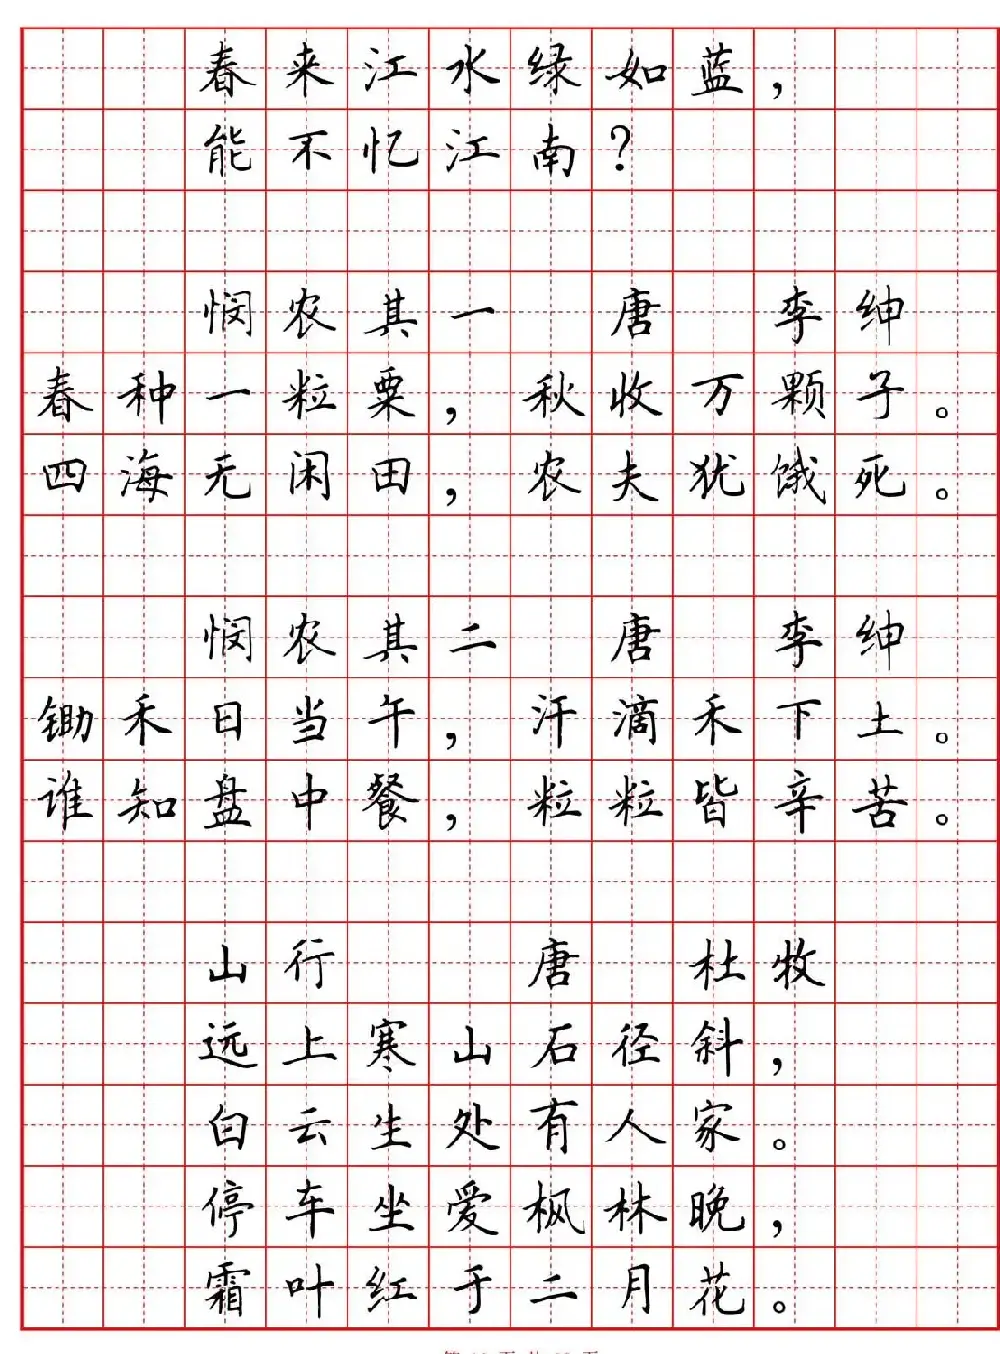 春来江水绿如蓝，
能不忆江南？
悯农其一 唐 李绅
春种一粒粟，秋收万颗子。
四海无闲田，农夫犹饿死。
悯农其二 唐 李绅
锄禾日当午，汗滴禾下土。
谁知盘中餐，粒粒皆辛苦。
山行 唐 杜牧
远上寒山石径斜，
白云生处有人家。
停车坐爱枫林晚，
霜叶红于二月花。